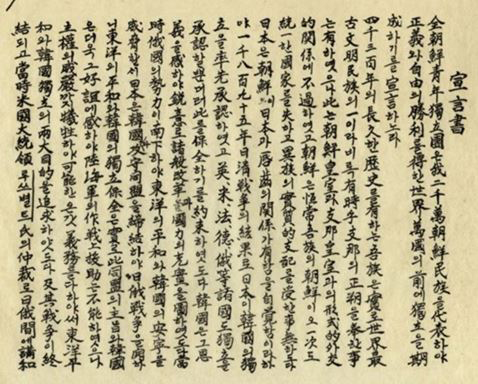 宣言書
全朝鮮靑年獨立團은我二千萬朝鮮民族을代表하야
正義와自由의勝利를得한世界萬國의前에獨立을期
成하기를宣言하노라
四千三百年의長久한歷史를有하는吾族은實로世界最
古文明民族의一이라비록有時乎支那의正朔을奉한事
는有하엿으나此는朝鮮皇室과支那皇室과의形式的外交
的關係에不過하엿고朝鮮은恒常吾族의朝鮮이오一次도
統一한國家를失하고異族의實質的支配를受한事無하도다
日本은朝鮮이日本과脣齒의關係가有함을自覺함이라하
야一千八百九十五年日淸戰爭의結果로日本이韓國의獨
立을率先承認하엿고英、米、法、德、俄等諸國도獨立을
承認할뿐더러此를保全하기를約束하엿도다韓國은그恩
義를感하야銳意로諸般改革과國力의充實을圖하엿도다當
時俄國의勢力이南下하야東洋의平和와韓國의安寧을
威脅할새日本은韓國과攻守同盟을締結하야日俄戰爭을開하
니東洋의平和와韓國의獨立保全은實로此同盟의主旨와韓國
은더욱그好誼에感하야陸海軍의作戰上援助는不能하엿으나
主權의威嚴까지犧牲하야可能한온갖義務를다하야써東洋平
和와韓國獨立의兩大目的을追求하얏도다及其戰爭이終
結되고當時米國大統領루쓰벨트氏의仲裁로日俄間에講和